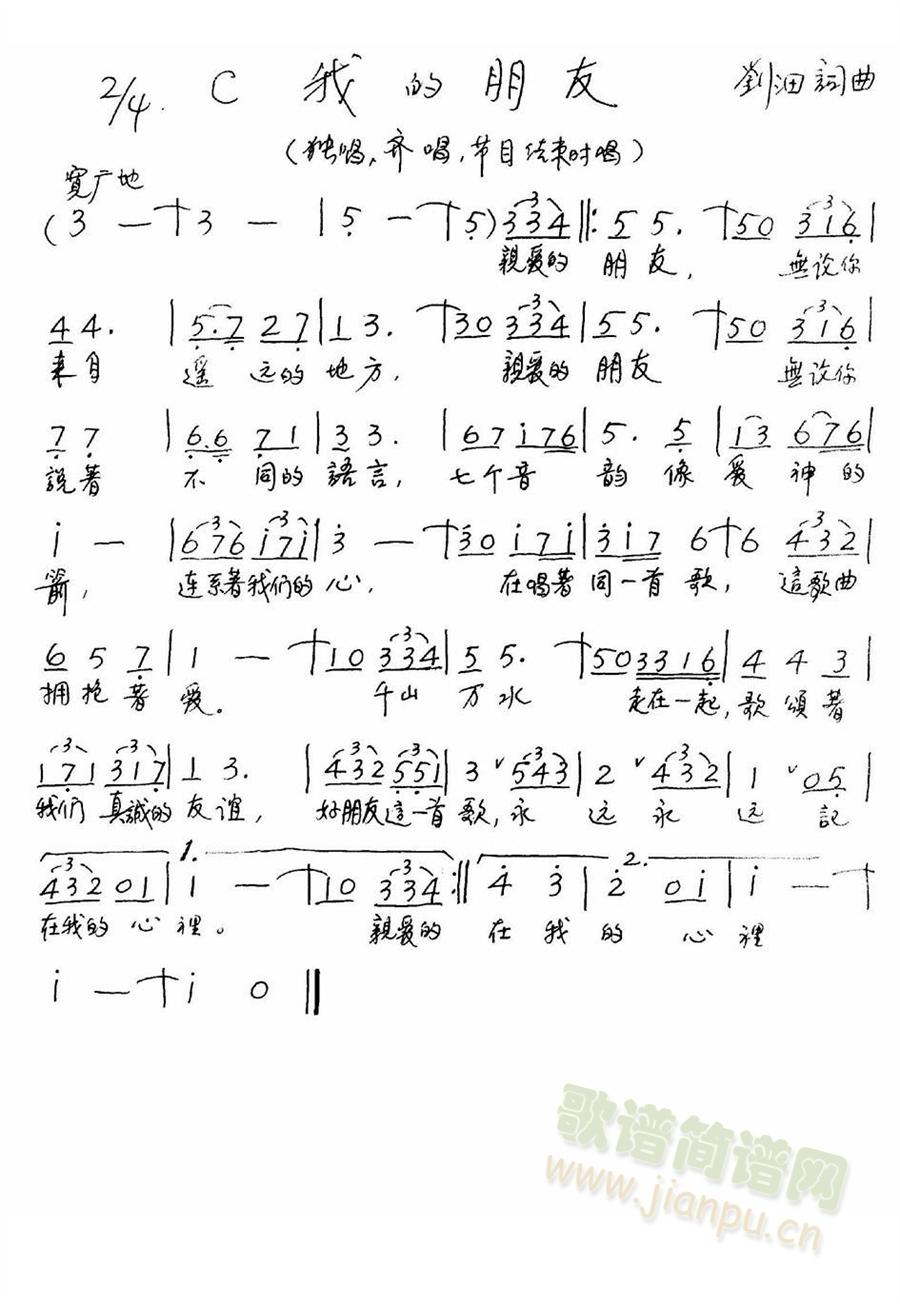 2/4. C 我的朋友 劉沺詞曲
(独唱,齐唱,节目结束时唱)
寬广地
(3 — | 3 — | 5̣ — | 5̣) 3 3 4 ‖: 5 5. | 5 0 3 1 6̣ |
親爱的 朋友, 無论你
4 4. | 5̣. 7̣ 2 7̣ | 1 3. | 3 0 3 3 4 | 5 5. | 5 0 3 1 6̣ |
来自 遥远的地方, 親爱的 朋友 無论你
7̣ 7̣ | 6̣. 6̣ 7̣ 1 | 3 3. | 6 7 i 7 6 | 5. 5̣ | 1 3 6 7 6 |
説著 不同的語言, 七个音韵像爱神的
i — | 6 7 6 i 7 i | 3̇ — | 3̇ 0 i 7 i | 3̇ i 7 6 | 6 4 3 2 |
箭, 连系著我们的心, 在唱著同一首歌, 這歌曲
6 5 7̣ | 1 — | 1 0 3 3 4 | 5 5. | 5 0 3 3 1 6̣ | 4 4 3 |
拥抱著爱。 千山万水 走在一起,歌頌著
1 7̣ 1 3 1 7̣ | 1 3. | 4 3 2 5̣ 5̣ 1 | 3 ˅ 5 4 3 | 2 ˅ 4 3 2 | 1 ˅ 0 5̣ |
我们真誠的友谊, 好朋友這一首歌,永远永远記
1. 2.
4 3 2 0 1 | 1 — | 1 0 3 3 4 :‖ 4̇ 3̇ | 2̇ 0 i | i — |
在我的心裡。 親爱的 在我的心裡
i — | i 0 ‖
歌谱简谱网
www.jianpu.cn